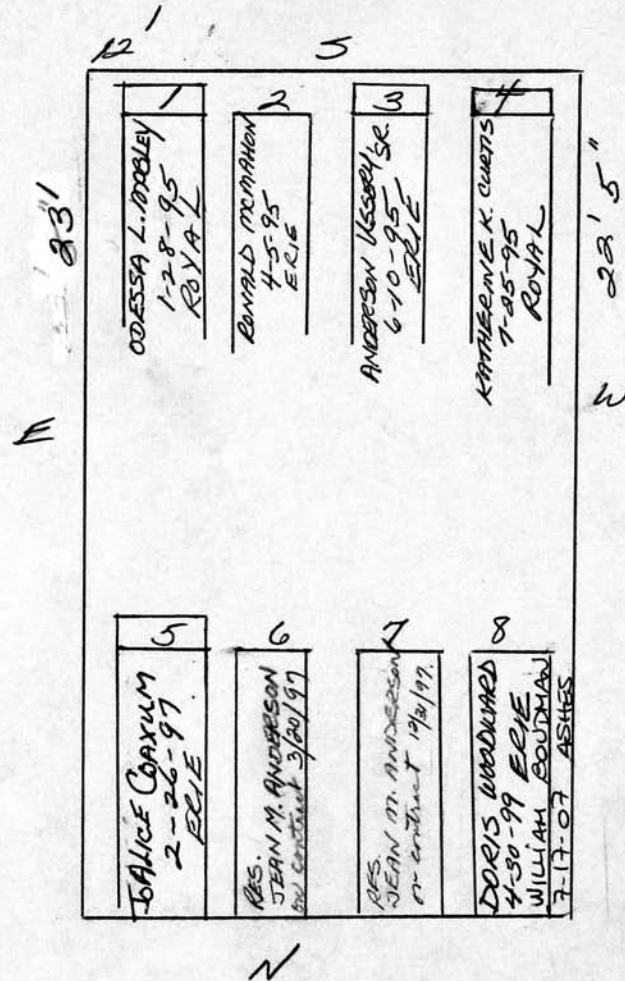 12'
S
23'
E
1
ODESSA L. MOBLEY
1-28-95
ROYAL
2
RONALD MCMAHON
4-5-95
ERIE
3
ANDERSON USSERY SR.
6-10-95
ERIE
4
KATHERINE K. CURTIS
7-25-95
ROYAL
22' 5"
W
5
ALICE COAXUM
2-26-97
ERIE
6
RES.
JEAN M. ANDERSON
on contract 3/20/97
7
RES.
JEAN M. ANDERSON
on contract
8
DORIS WOODWARD
4-30-99 ERIE
WILLIAM BOUDMAN
7-17-07 ASHES
N